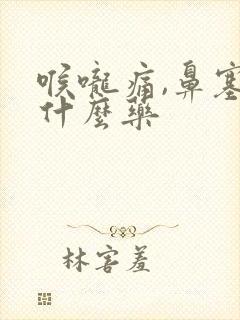 喉嚨痛,鼻塞
什麼藥
林害羞